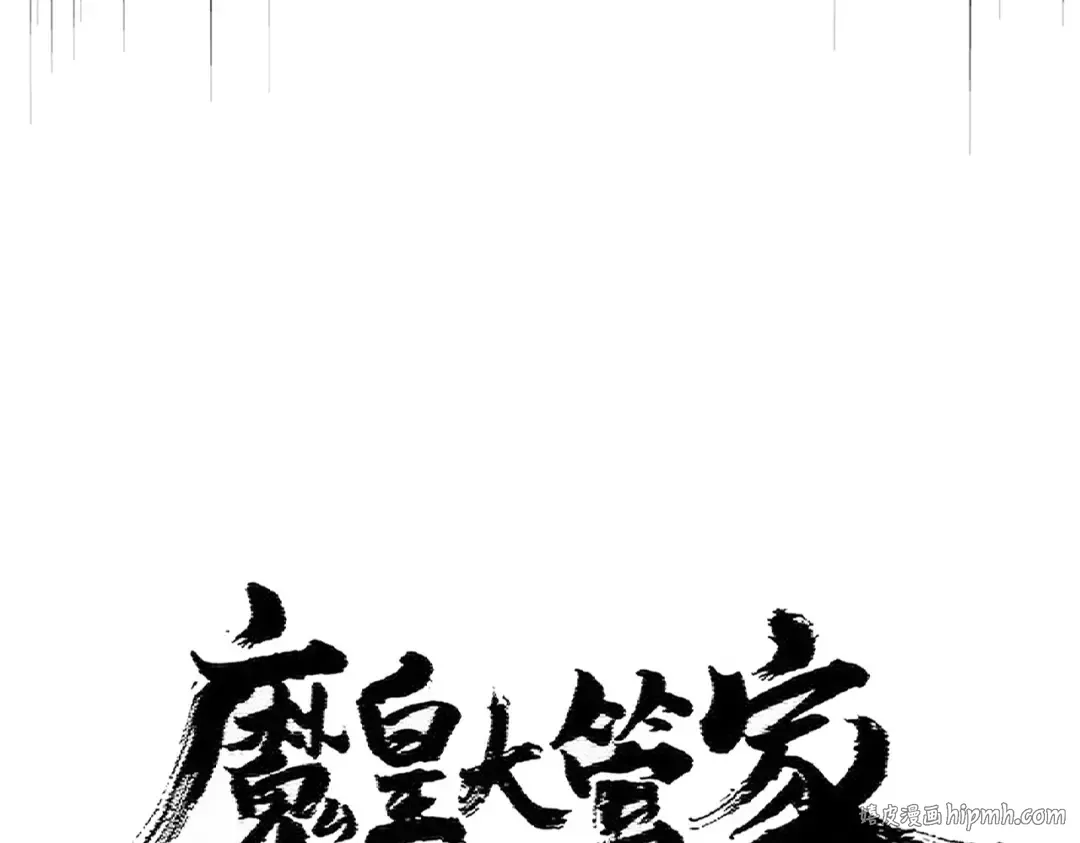 魔皇大管家
嬉皮漫画 hipmh.com